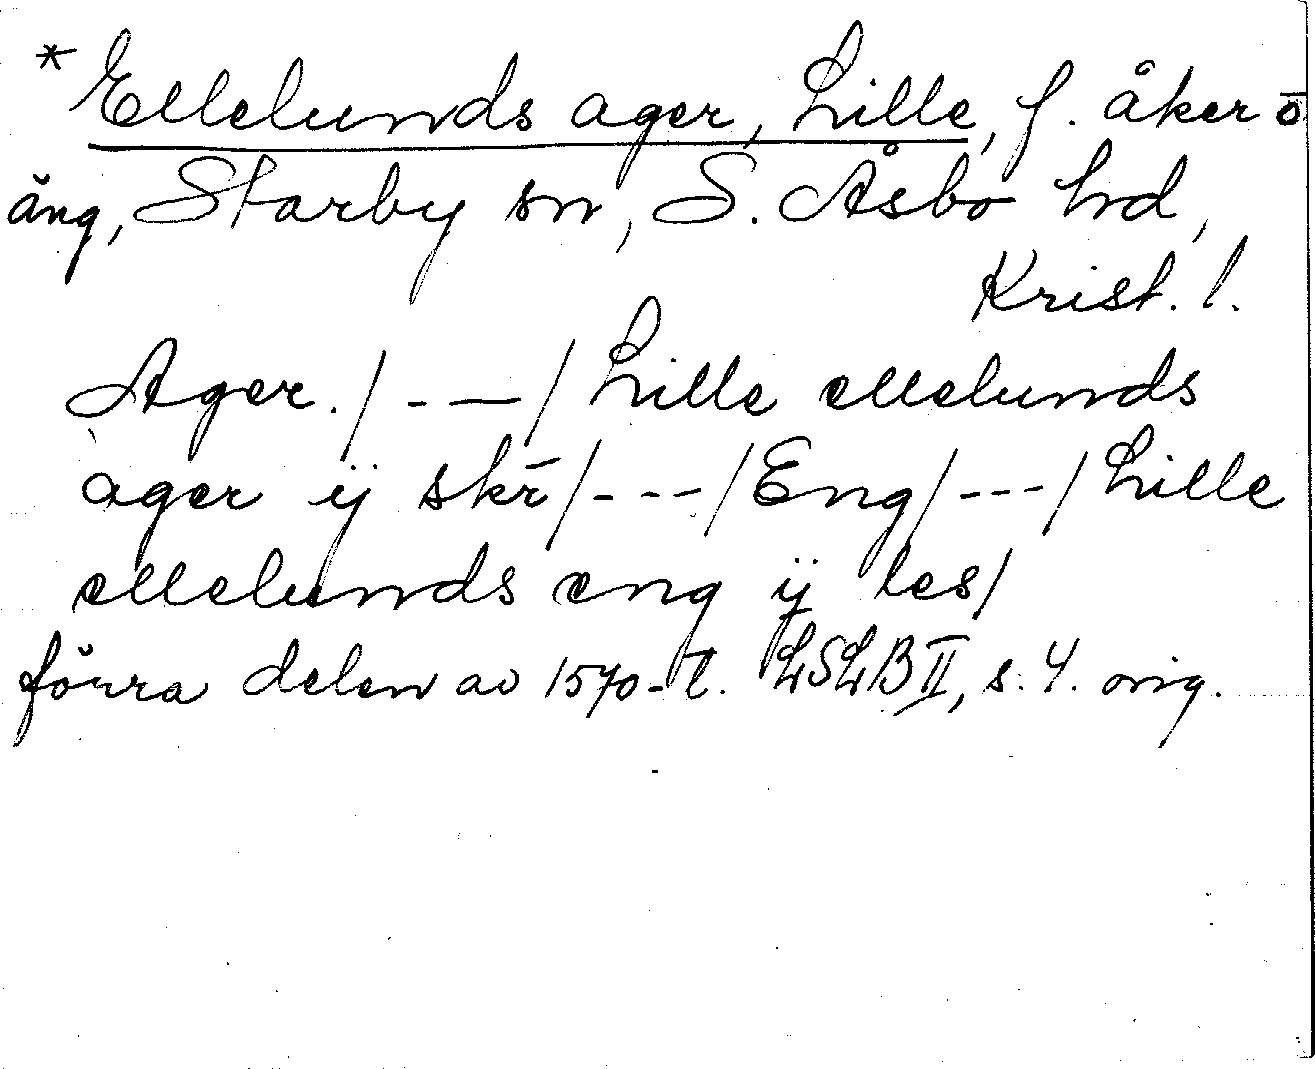 * Ellelunds ager, Lille, f. åker o
äng, Starby sn, S. Åsbo hd,
Krist. l.
Ager. /- —/ Lille ellelunds
ager ij skr̄ /- - -/ Eng /- - -/ Lille
ellelunds eng ij les/
förra delen av 1570-t. LSLB II, s. 4. orig.